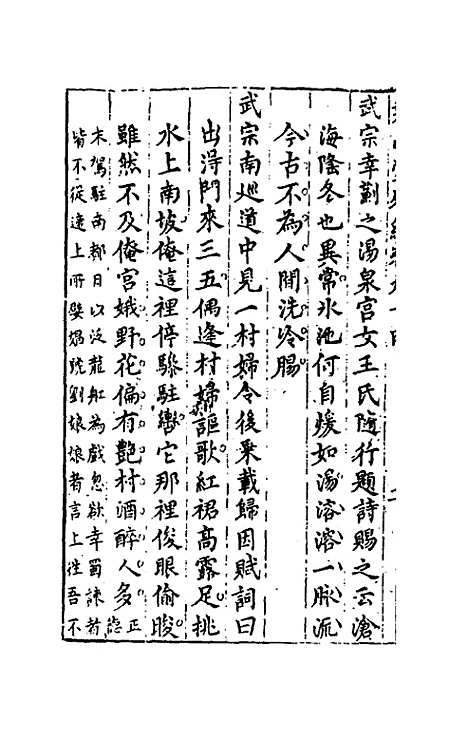 武宗幸薊之湯泉宮女王氏隨行題詩賜之云滄
海隂冬也異常氷池何自煖如湯溶溶一脉流
今古不為人間洗冷腸
武宗南巡道中見一村婦令後乗載歸因賦詞曰
出得門來三五偶逢村婦謳歌紅裙高露足挑
水上南坡俺這裡停驂駐轡它那裡俊眼偷睃
雖然不及俺宮娥野花偏有艶村酒醉人多正德
末駕駐南都日以泛龍舡為戲忽欲幸蜀諫者
皆不從逵上所嬖媢號劉娘娘者言上徃吾不